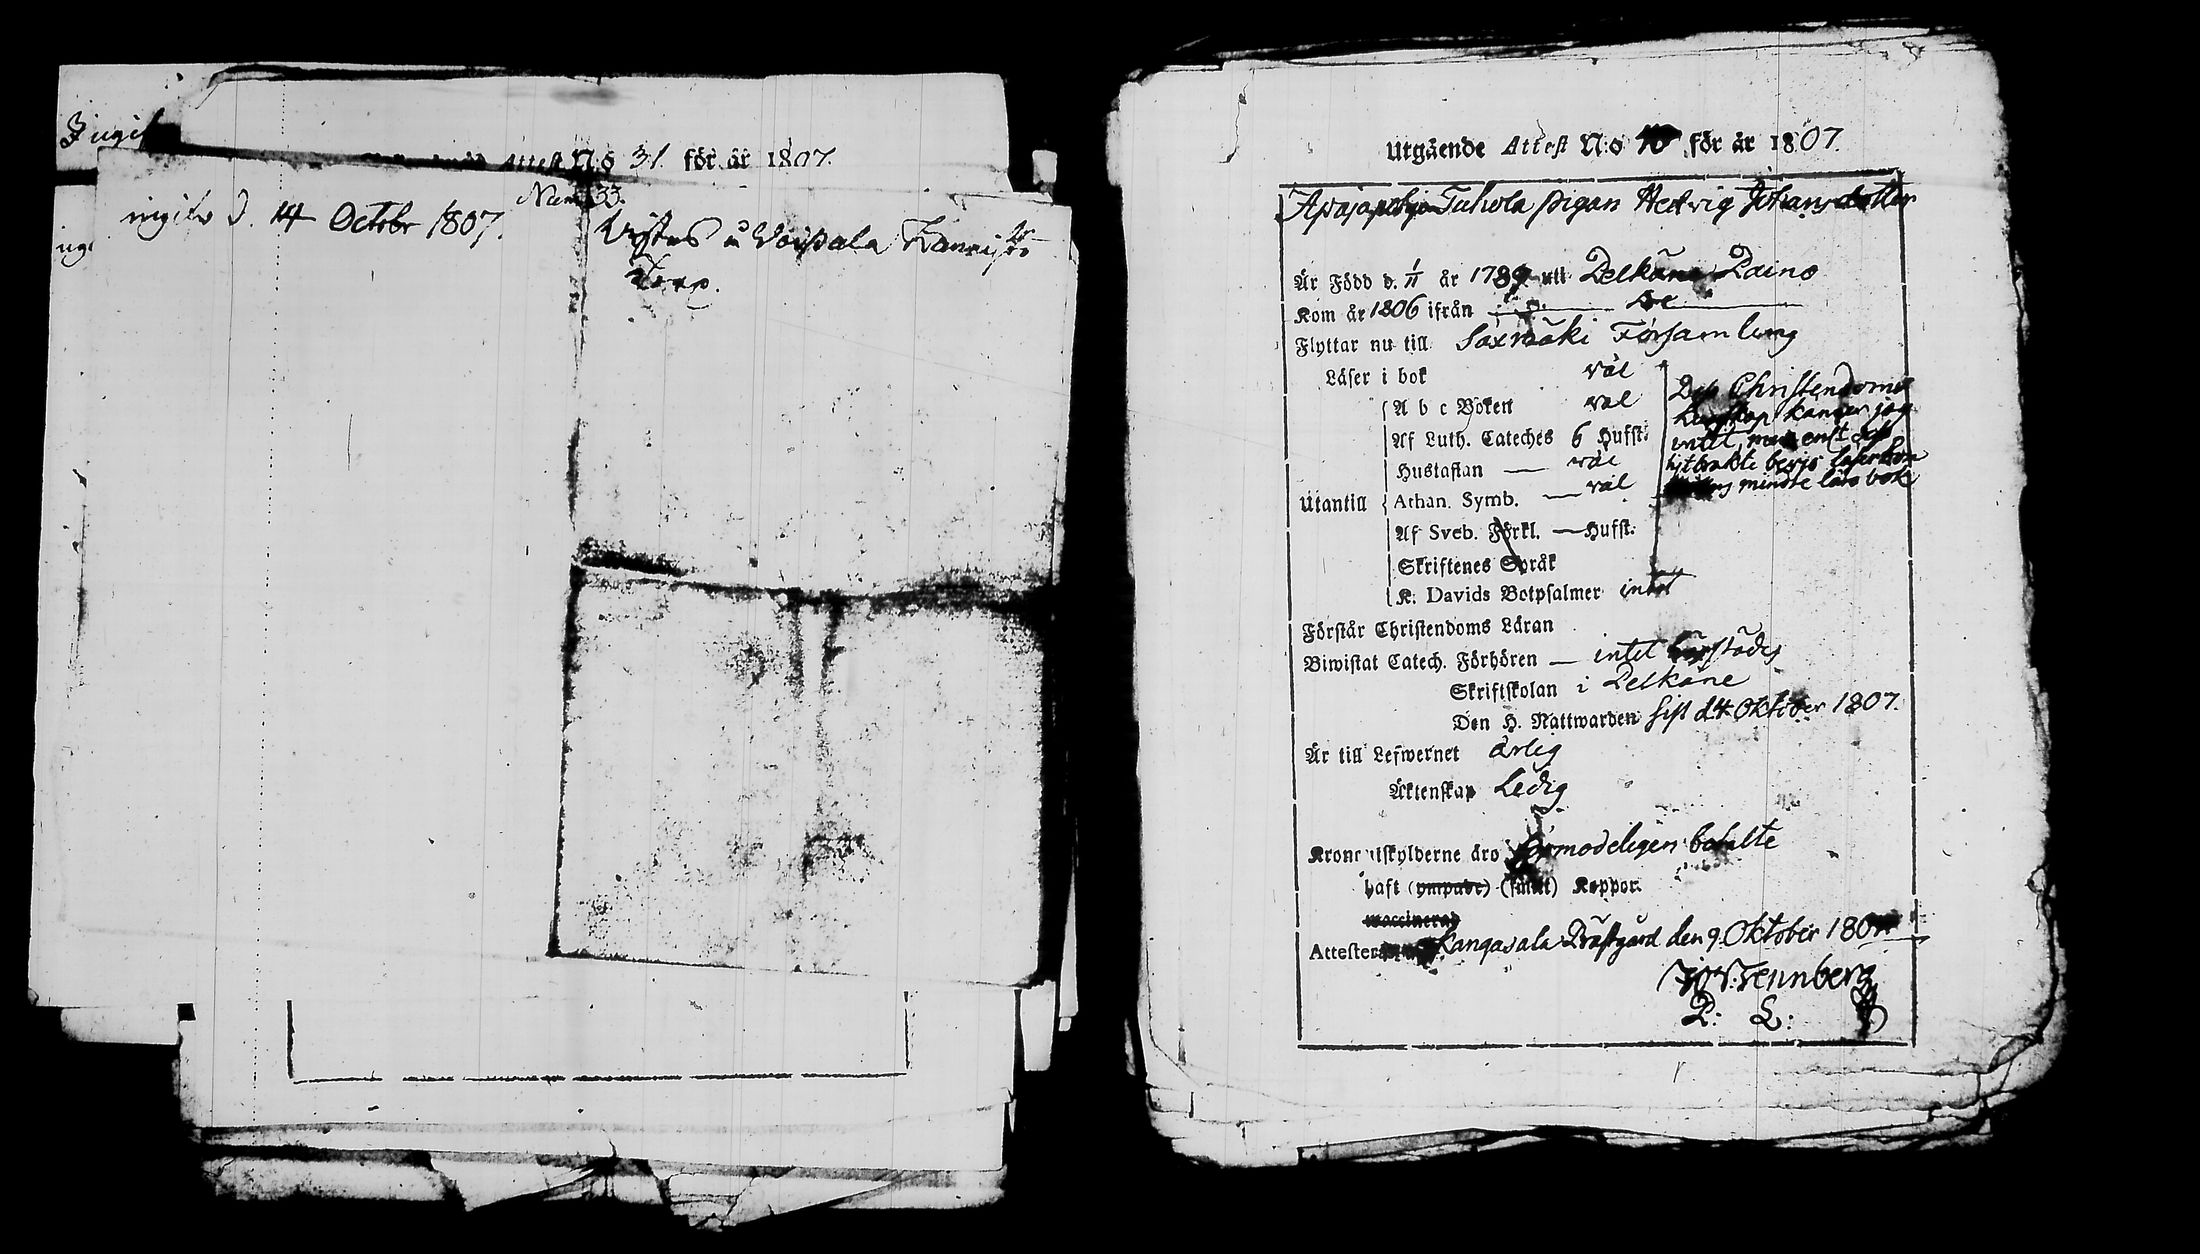 Attest N:o 31. för år 1807.
Num 33.
ingifv d. 14 Octobr 1807.
Vistas u Voipala Kannisto
Torp.
Utgående Attest N:o för år 1807.
Tuhola pigan Hedvig Johansdotter
Är Född d. 1/11 år 1789 uti Pelkäne Paino
Kom år 1806 ifrån
Flyttar nu till Säxmäki Församling
Läser i bok väl
A b c Boken väl
Af Luth. Cateches 6 Hufst.
Hustaflan — väl
Utantill Athan. Symb. — väl
Af Sveb. Förkl. — Hufst.
Skriftenes Språk
K. Davids Botpsalmer intet
Dess Christendoms
kunskap kanner jag
intet, men enst dess
mindre läsa bok
Förstår Christendoms Läran
Biwistat Catech. Förhören — intet härstädes
Skriftskolan i Pelkäne
Den H. Nattwarden sist d 4 Oktober 1807.
Är till Lefwernet ärlig
Äktenskap Ledig
Kronoutskylderne äro förmodeligen betalte
haft (ympade) (små) Koppor.
waccinerad
Attesterar Kangasala Prästgård den 9. Oktober 1807
Wennberg
P: L: